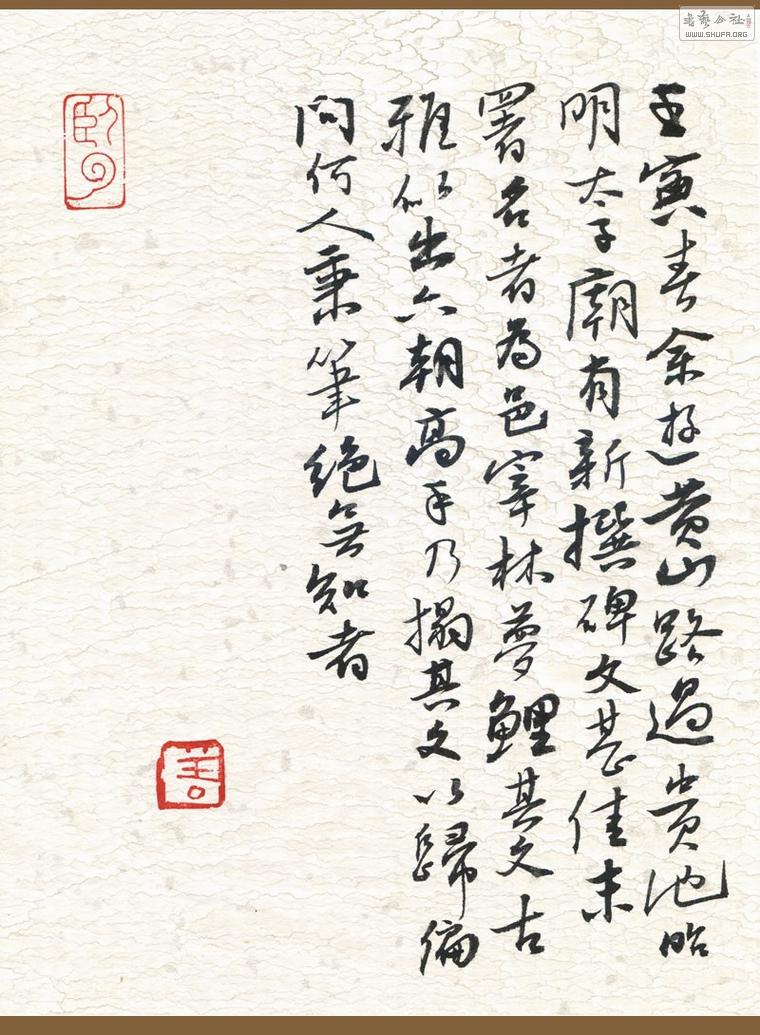 壬寅春余遊黄山路過貴池昭
明太子廟有新撰碑文甚佳末
署名者為邑宰林夢鯉其文古
雅似出六朝高手乃搨其文以歸偏
問何人秉筆絕無知者
善
WWW.SHUFA.ORG